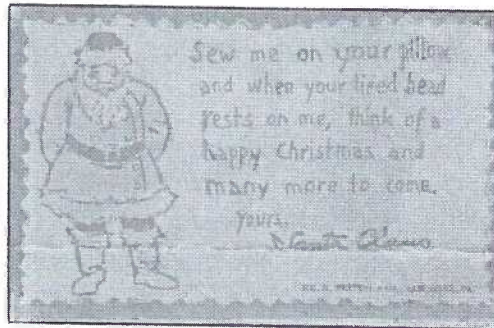 Sew me on your pillow
and when your tired head
rests on me, think of a
happy Christmas and
many more to come.
yours,
Santa Claus